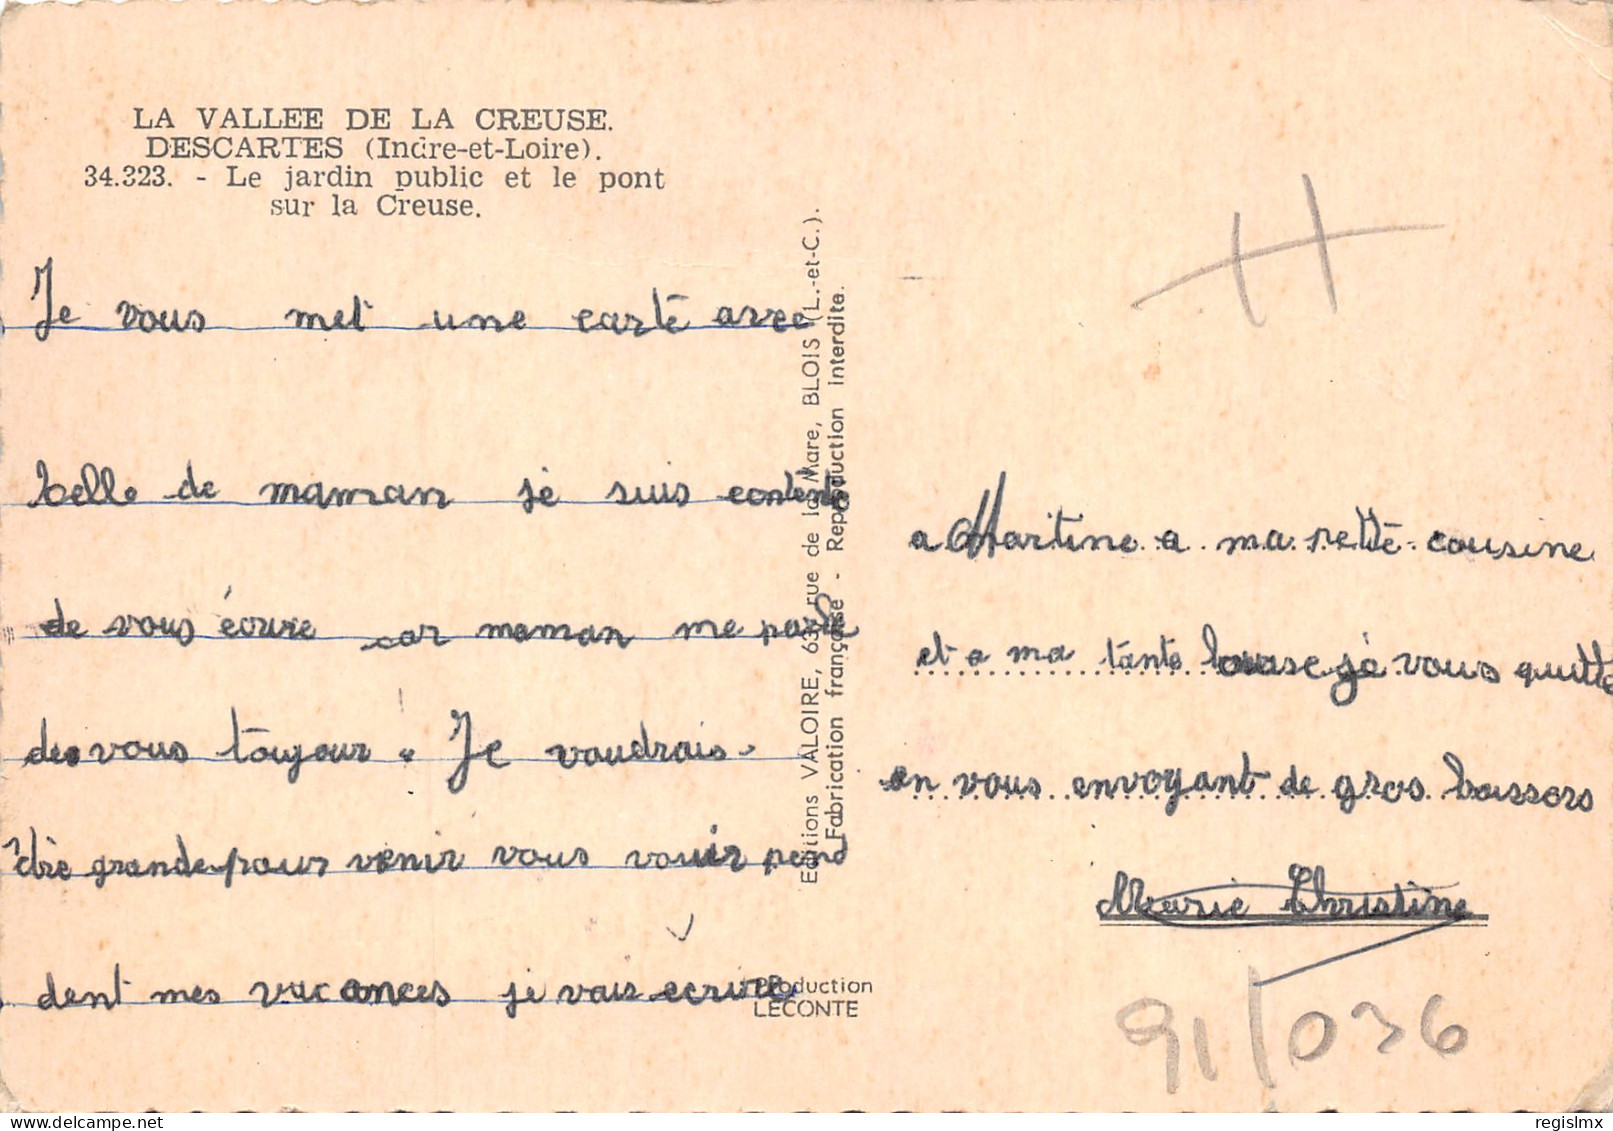 LA VALLEE DE LA CREUSE.
DESCARTES (Indre-et-Loire).
34.323. - Le jardin public et le pont
sur la Creuse.
Je vous met une carte avec
celle de maman je suis contente
de vous écrire car maman me parle
de vous toujour. Je voudrais
être grande pour venir vous vouir pend
dent mes vacances je vais écrire
Editions VALOIRE, 63, rue de la Mare, BLOIS (L.-et-C.).
Fabrication française - Reproduction interdite.
Production
LECONTE
a Martine a ma petite cousine
et a ma tante je vous quitte
en vous envoyant de gros baissers
Marie Christine
91/036
regislmx